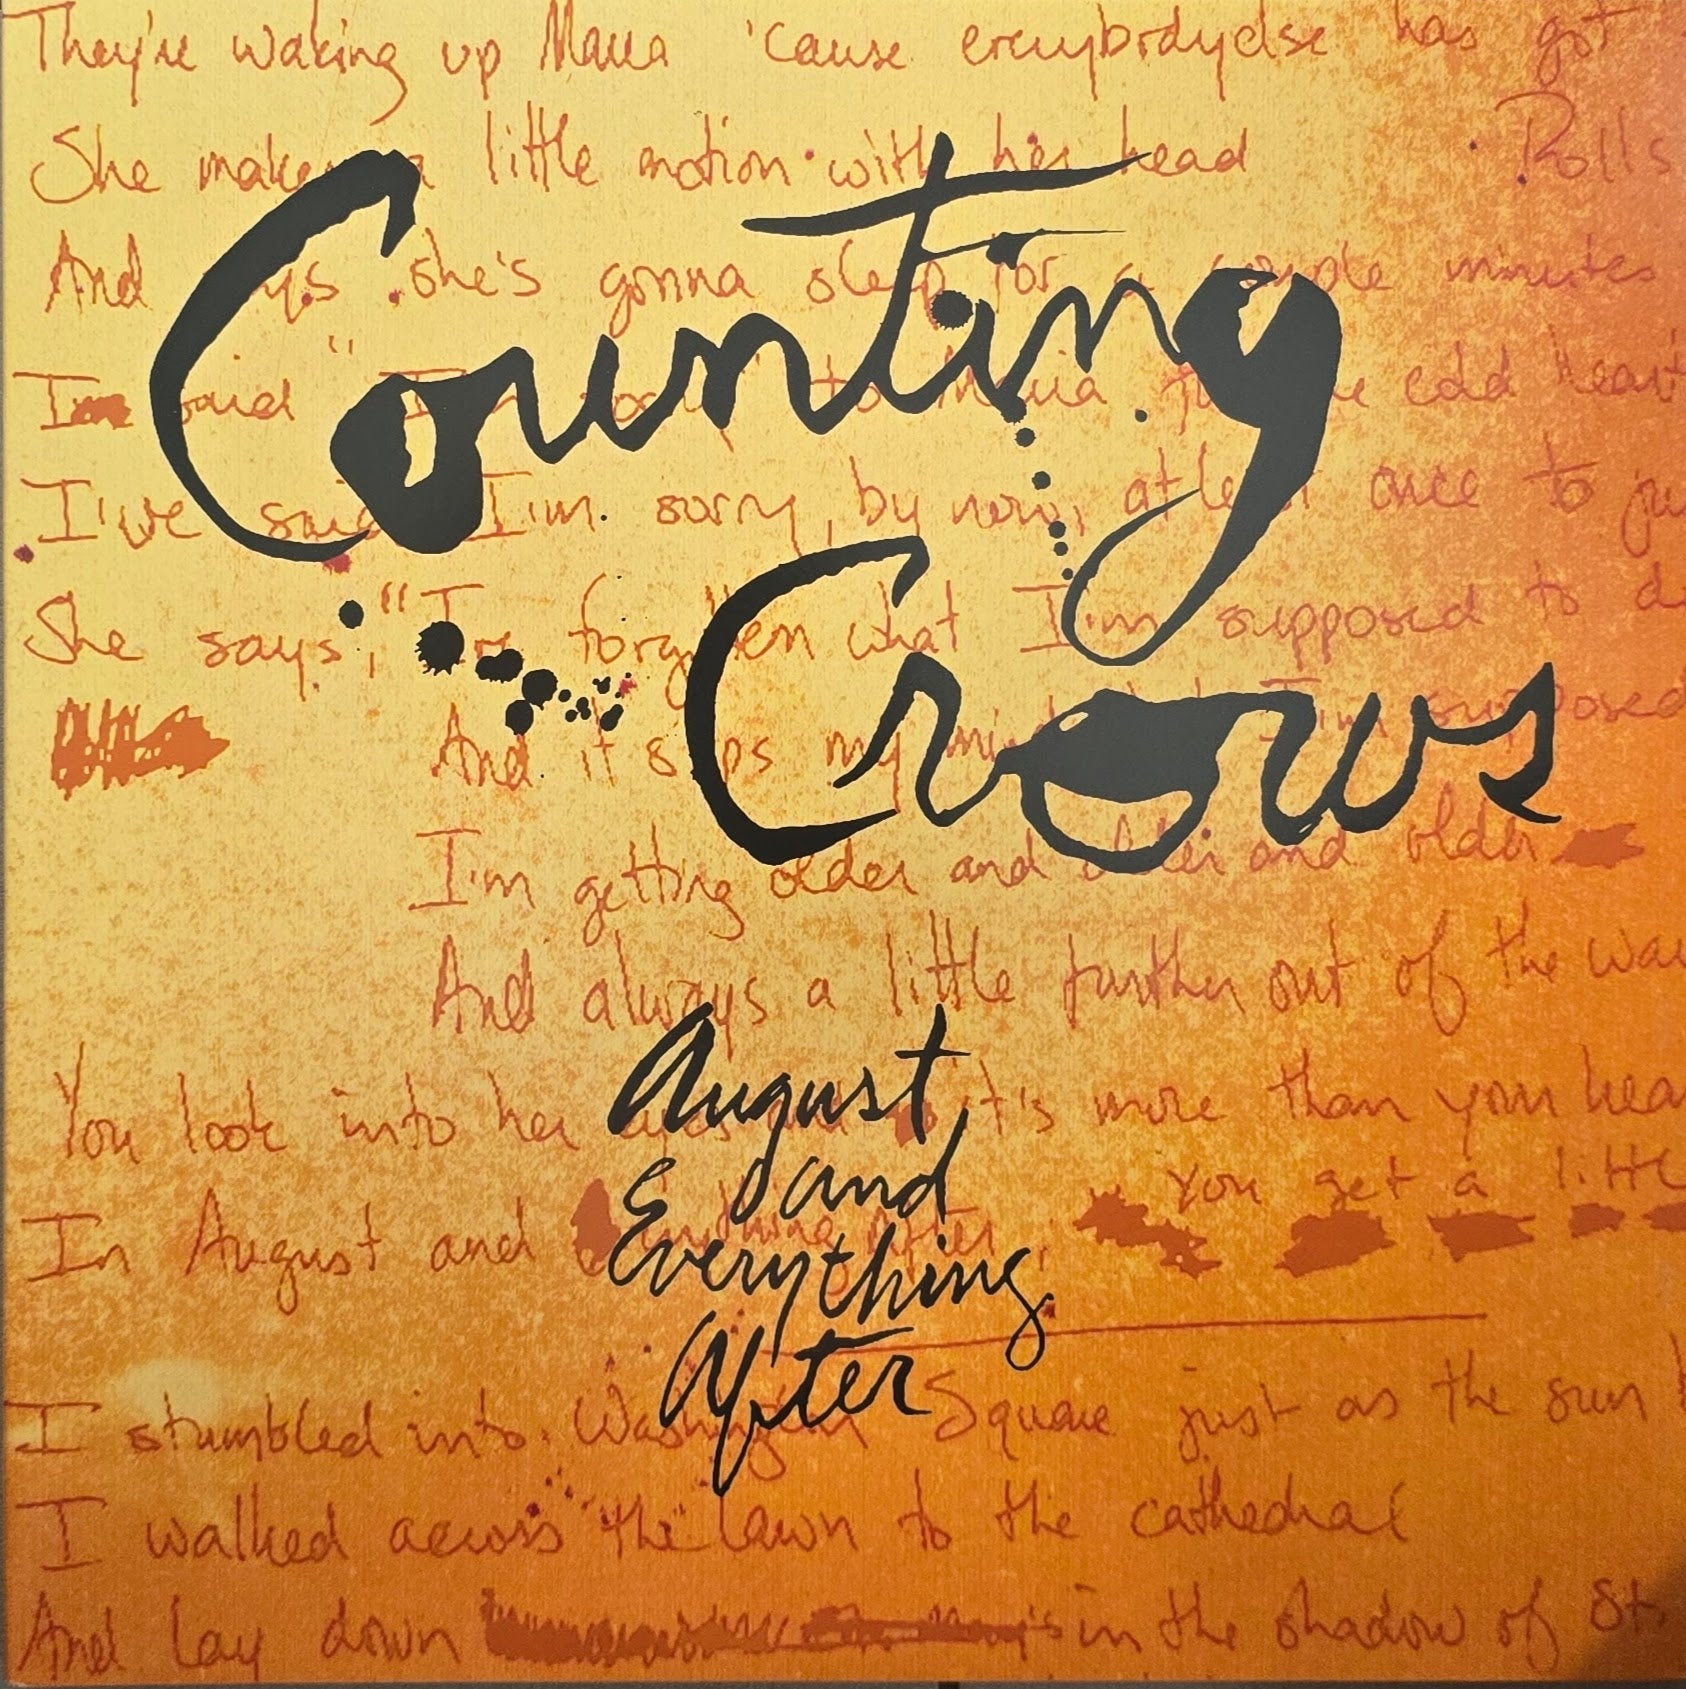 They're waking up Maria 'cause everybody else has got
She makes a little motion with her head
Rolls
And says she's gonna sleep for a couple minutes
Counting
I said "I'm sorry to Maria for the cold heart
I've said I'm sorry, by now, at least once to ju
Crows
She says, "I've forgotten what I'm supposed to d
And it slips my mind what I'm supposed
I'm getting older and older and older
And always a little further out of the way
August
and
Everything
After
You look into her eyes and it's more than your hear
you get a little
In August and everything after,
I stumbled into Washington Square just as the sun b
I walked across the lawn to the cathedral
And lay down in the shadow of St.